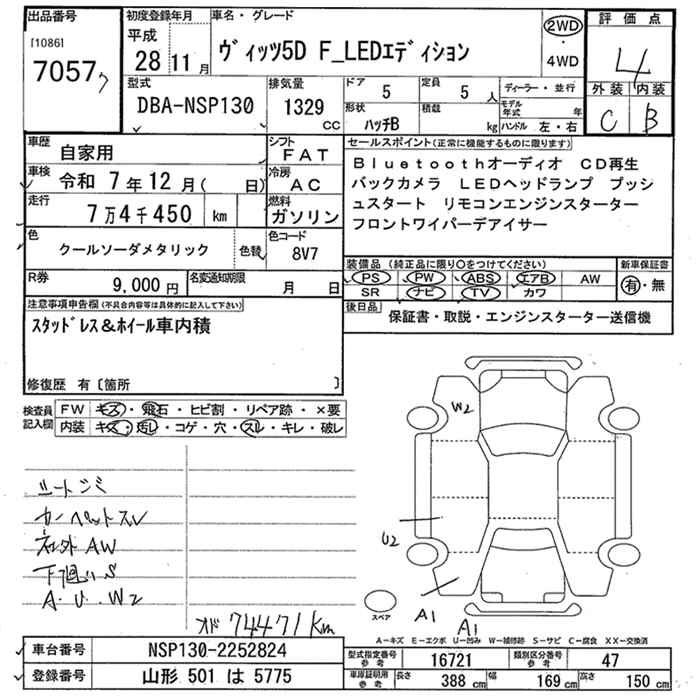 出品番号
[1086]
7057ク
初度登録年月
平成
28 11 月
車名・グレード
ヴィッツ5D F_LEDエディション
2WD
・
4WD
評価点
4
外装 内装
C B
型式
DBA-NSP130
排気量
1329
CC
ドア
5
定員
5 人
形状
ハッチB
積載
kg
ディーラー・並行
モデル年式 年
ハンドル 左・右
車歴
自家用
シフト
FAT
車検
令和 7年12月( 日)
冷房
AC
走行
7万4千450 km
燃料
ガソリン
色
クールソーダメタリック
色替
色コード
8V7
R券
9,000円
名変通知期限
月 日
セールスポイント(正常に機能するものに限ります)
Bluetoothオーディオ CD再生
バックカメラ LEDヘッドランプ プッシ
ュスタート リモコンエンジンスターター
フロントワイパーデアイサー
装備品(純正品に限り○をつけてください)
PS PW ABS エアB AW
SR ナビ TV カワ
新車保証書
有・無
後日品
保証書・取説・エンジンスターター送信機
注意事項申告欄(不具合内容等は具体的に記入して下さい)
スタッドレス&ホイール車内積
修復歴 有〔箇所 〕
検査員
記入欄
FW キズ・飛石・ヒビ割・リペア跡・×要
内装 キズ・汚レ・コゲ・穴・スレ・キレ・破レ
シートシミ
カーペットスレ
ネジ外 AW
下廻りS
A.U.W2
オド 74471Km
W2
U2
A1
A1
スペア
A-キズ E-エクボ U-凹み W-補修跡 S-サビ C-腐食 XX-交換済
車台番号
NSP130-2252824
登録番号
山形 501 は 5775
型式指定番号
参考
16721
類別区分番号
参考
47
車庫証明用
参考
長さ
388 cm
幅
169 cm
高さ
150 cm